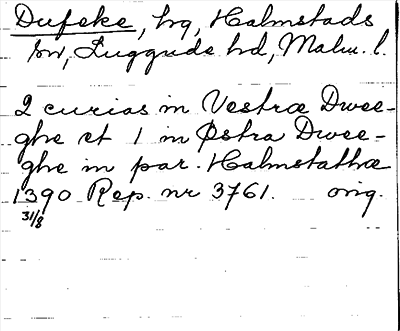 Dufeke, by, Halmstads
sn, Luggude hd, Malm. l.
2 curias in Vestræ Dwee-
ghe et 1 in Østra Dwee-
ghe in par. Halmstathæ
1390 Rep. nr 3761. orig.
31/8